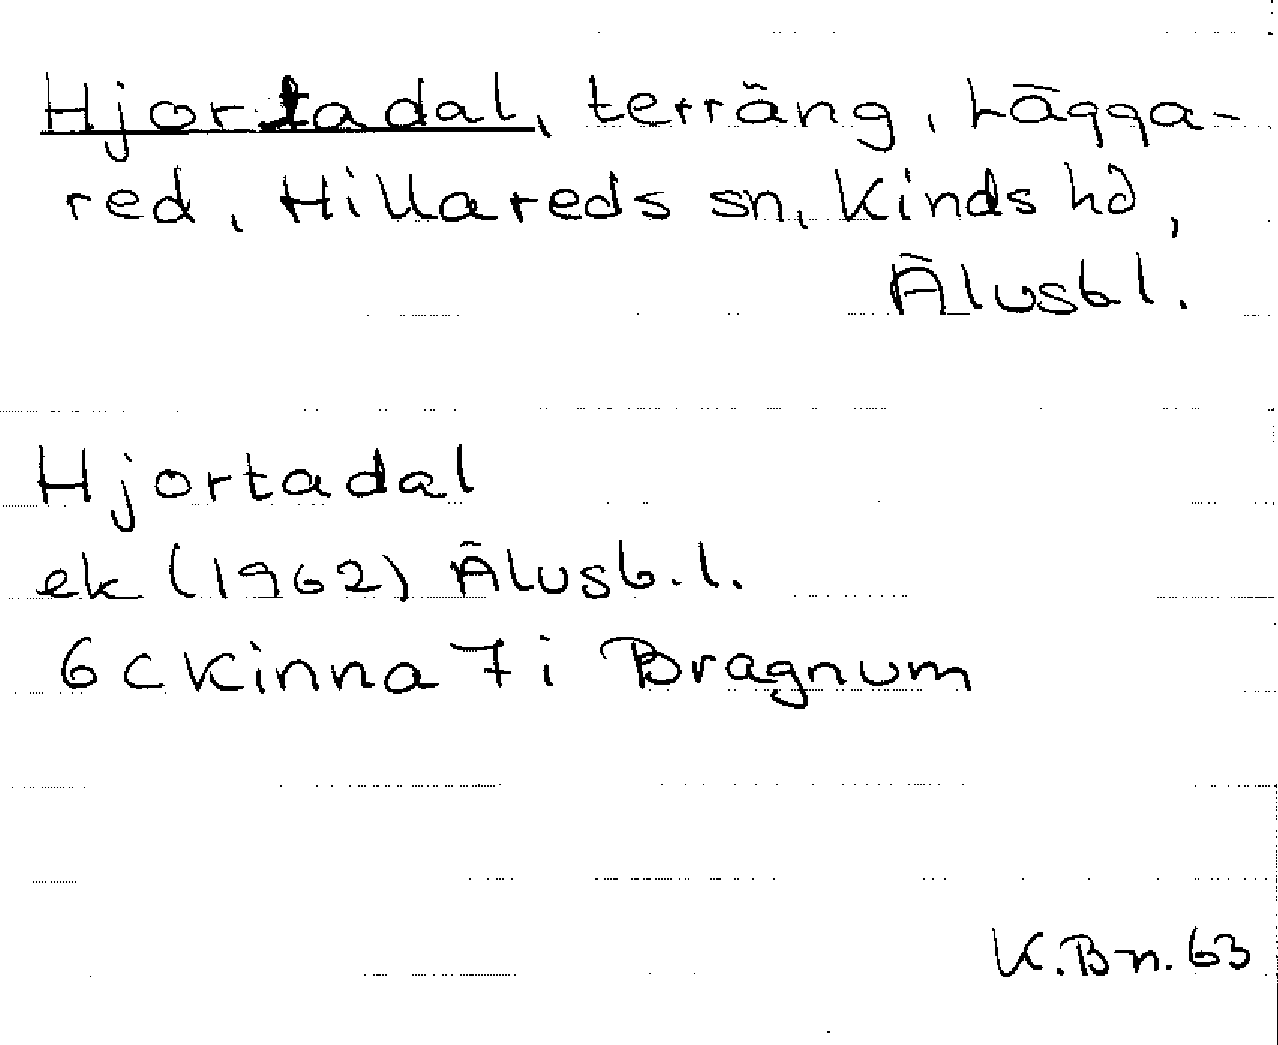 Hjortadal, terräng, Lägga-
red, Hillareds sn, Kinds hd,
Älvsbl.
Hjortadal
ek (1962) Älvsb.l.
6 C Kinna 7 i Bragnum
K.Bn.63